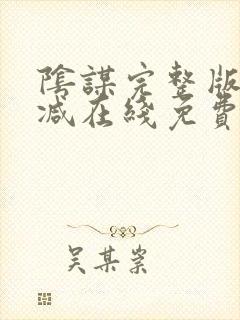 陰謀完整版
减在綫免費
吴某崇